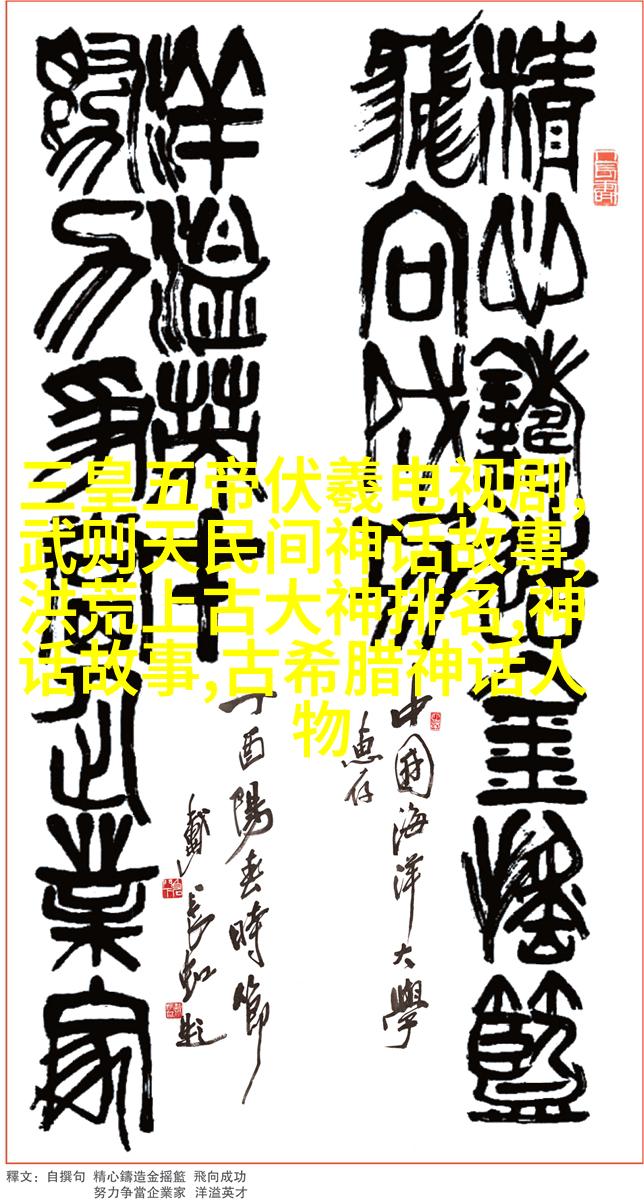 精心鑄造金摇籃
飛向成功
中國海洋大學
惠存
努力争當企業家
洋溢英才
丁酉陽春時節
戴長虹題
三皇五帝伏羲电视剧,
武则天民间神话故事,
洪荒上古大神排名,神
话故事,古希腊神话人
物
釋文：自撰句 精心鑄造金摇籃 飛向成功
努力争當企業家 洋溢英才